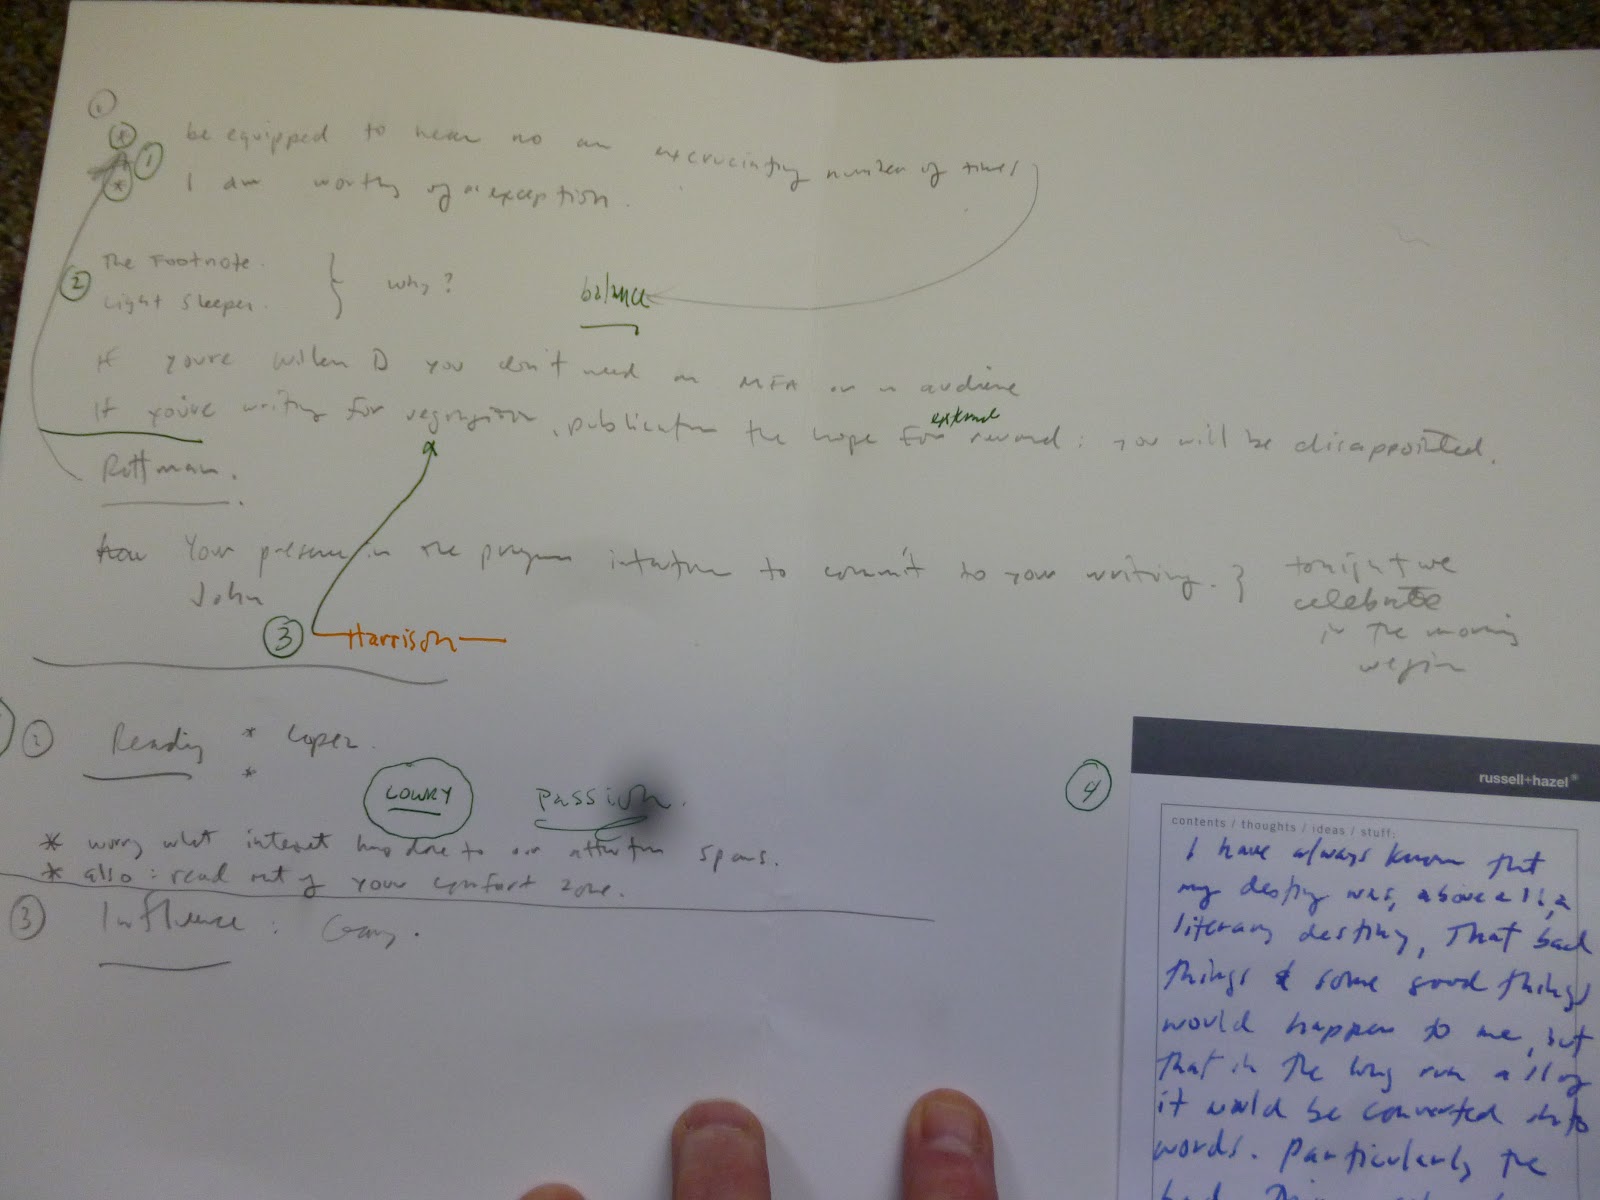 1
*
1
be equipped to hear no an excruciating number of times
*
I am worthy of a exception.
2
The Footnote
Light Sleeper.
} why?
balance
If you're Willem D you don't need an MFA or an audience
If you're writing for recognition, publication the hope for external reward: you will be disappointed.
Rottman.
Your presence in the program intention to commit to your writing. }
John
tonight we
celebrate
in the morning
we begin
3
Harrison
2
Reading * Lopez.
*
LOWRY
passion.
* worry what internet has done to our attention spans.
* also: read out of your comfort zone.
3
Influence: Gary.
4
russell+hazel®
contents / thoughts / ideas / stuff:
I have always known that
my destiny was, above all, a
literary destiny, That bad
things & some good things
would happen to me, but
that in the long run all of
it would be converted into
words. Particularly the
bad